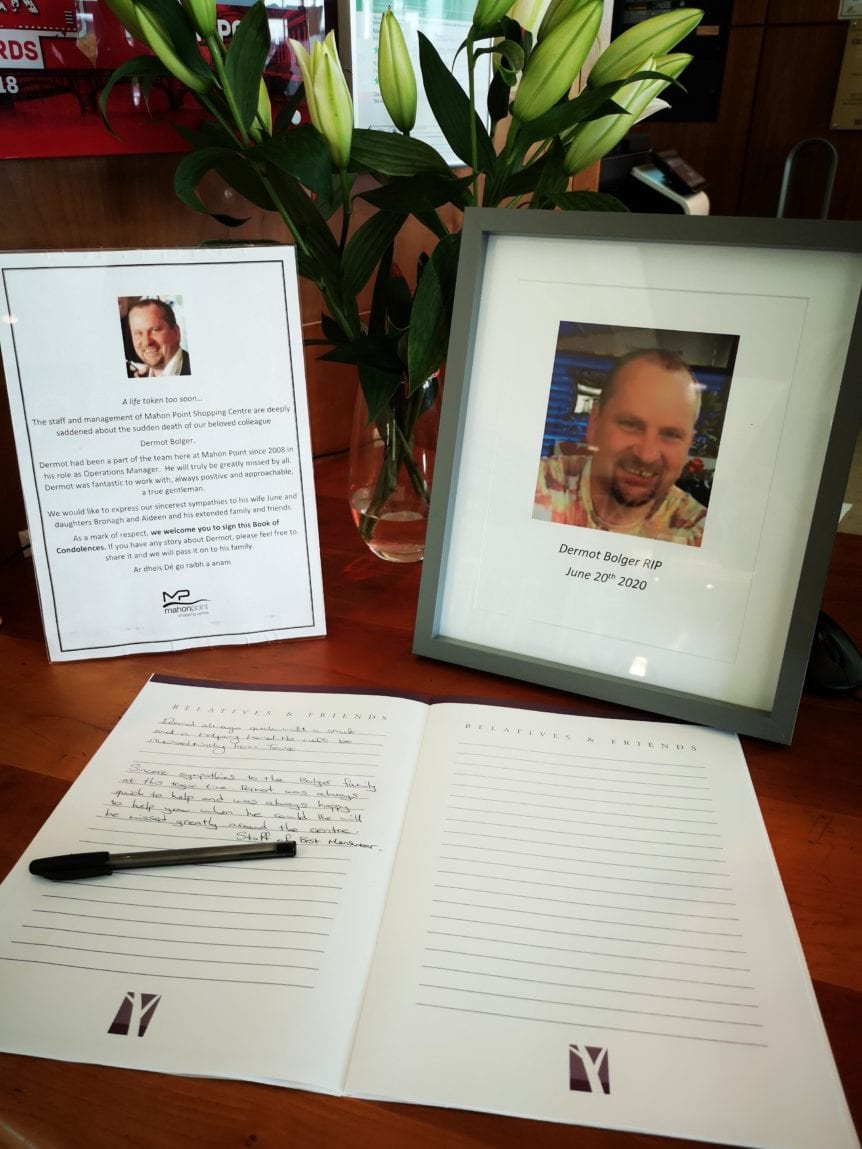 RDS
18
PO
A life taken too soon…
The staff and management of Mahon Point Shopping Centre are deeply
saddened about the sudden death of our beloved colleague
Dermot Bolger.
Dermot had been a part of the team here at Mahon Point since 2008 in
his role as Operations Manager. He will truly be greatly missed by all.
Dermot was fantastic to work with, always positive and approachable,
a true gentleman.
We would like to express our sincerest sympathies to his wife June and
daughters Bronagh and Aideen and his extended family and friends.
As a mark of respect, we welcome you to sign this Book of
Condolences. If you have any story about Dermot, please feel free to
share it and we will pass it on to his family.
Ar dheis Dé go raibh a anam
MP
mahonpoint
shopping centre
Dermot Bolger RIP
June 20th 2020
RELATIVES & FRIENDS
always quick with a smile
and a helping hand He will be
missed from
Sincere sympathies to the Bolger family
at this tragic time Dermot was always
quick to help and was always happy
to help you when he could He will
be missed greatly around the centre.
Staff of Best Menswear.
RELATIVES & FRIENDS